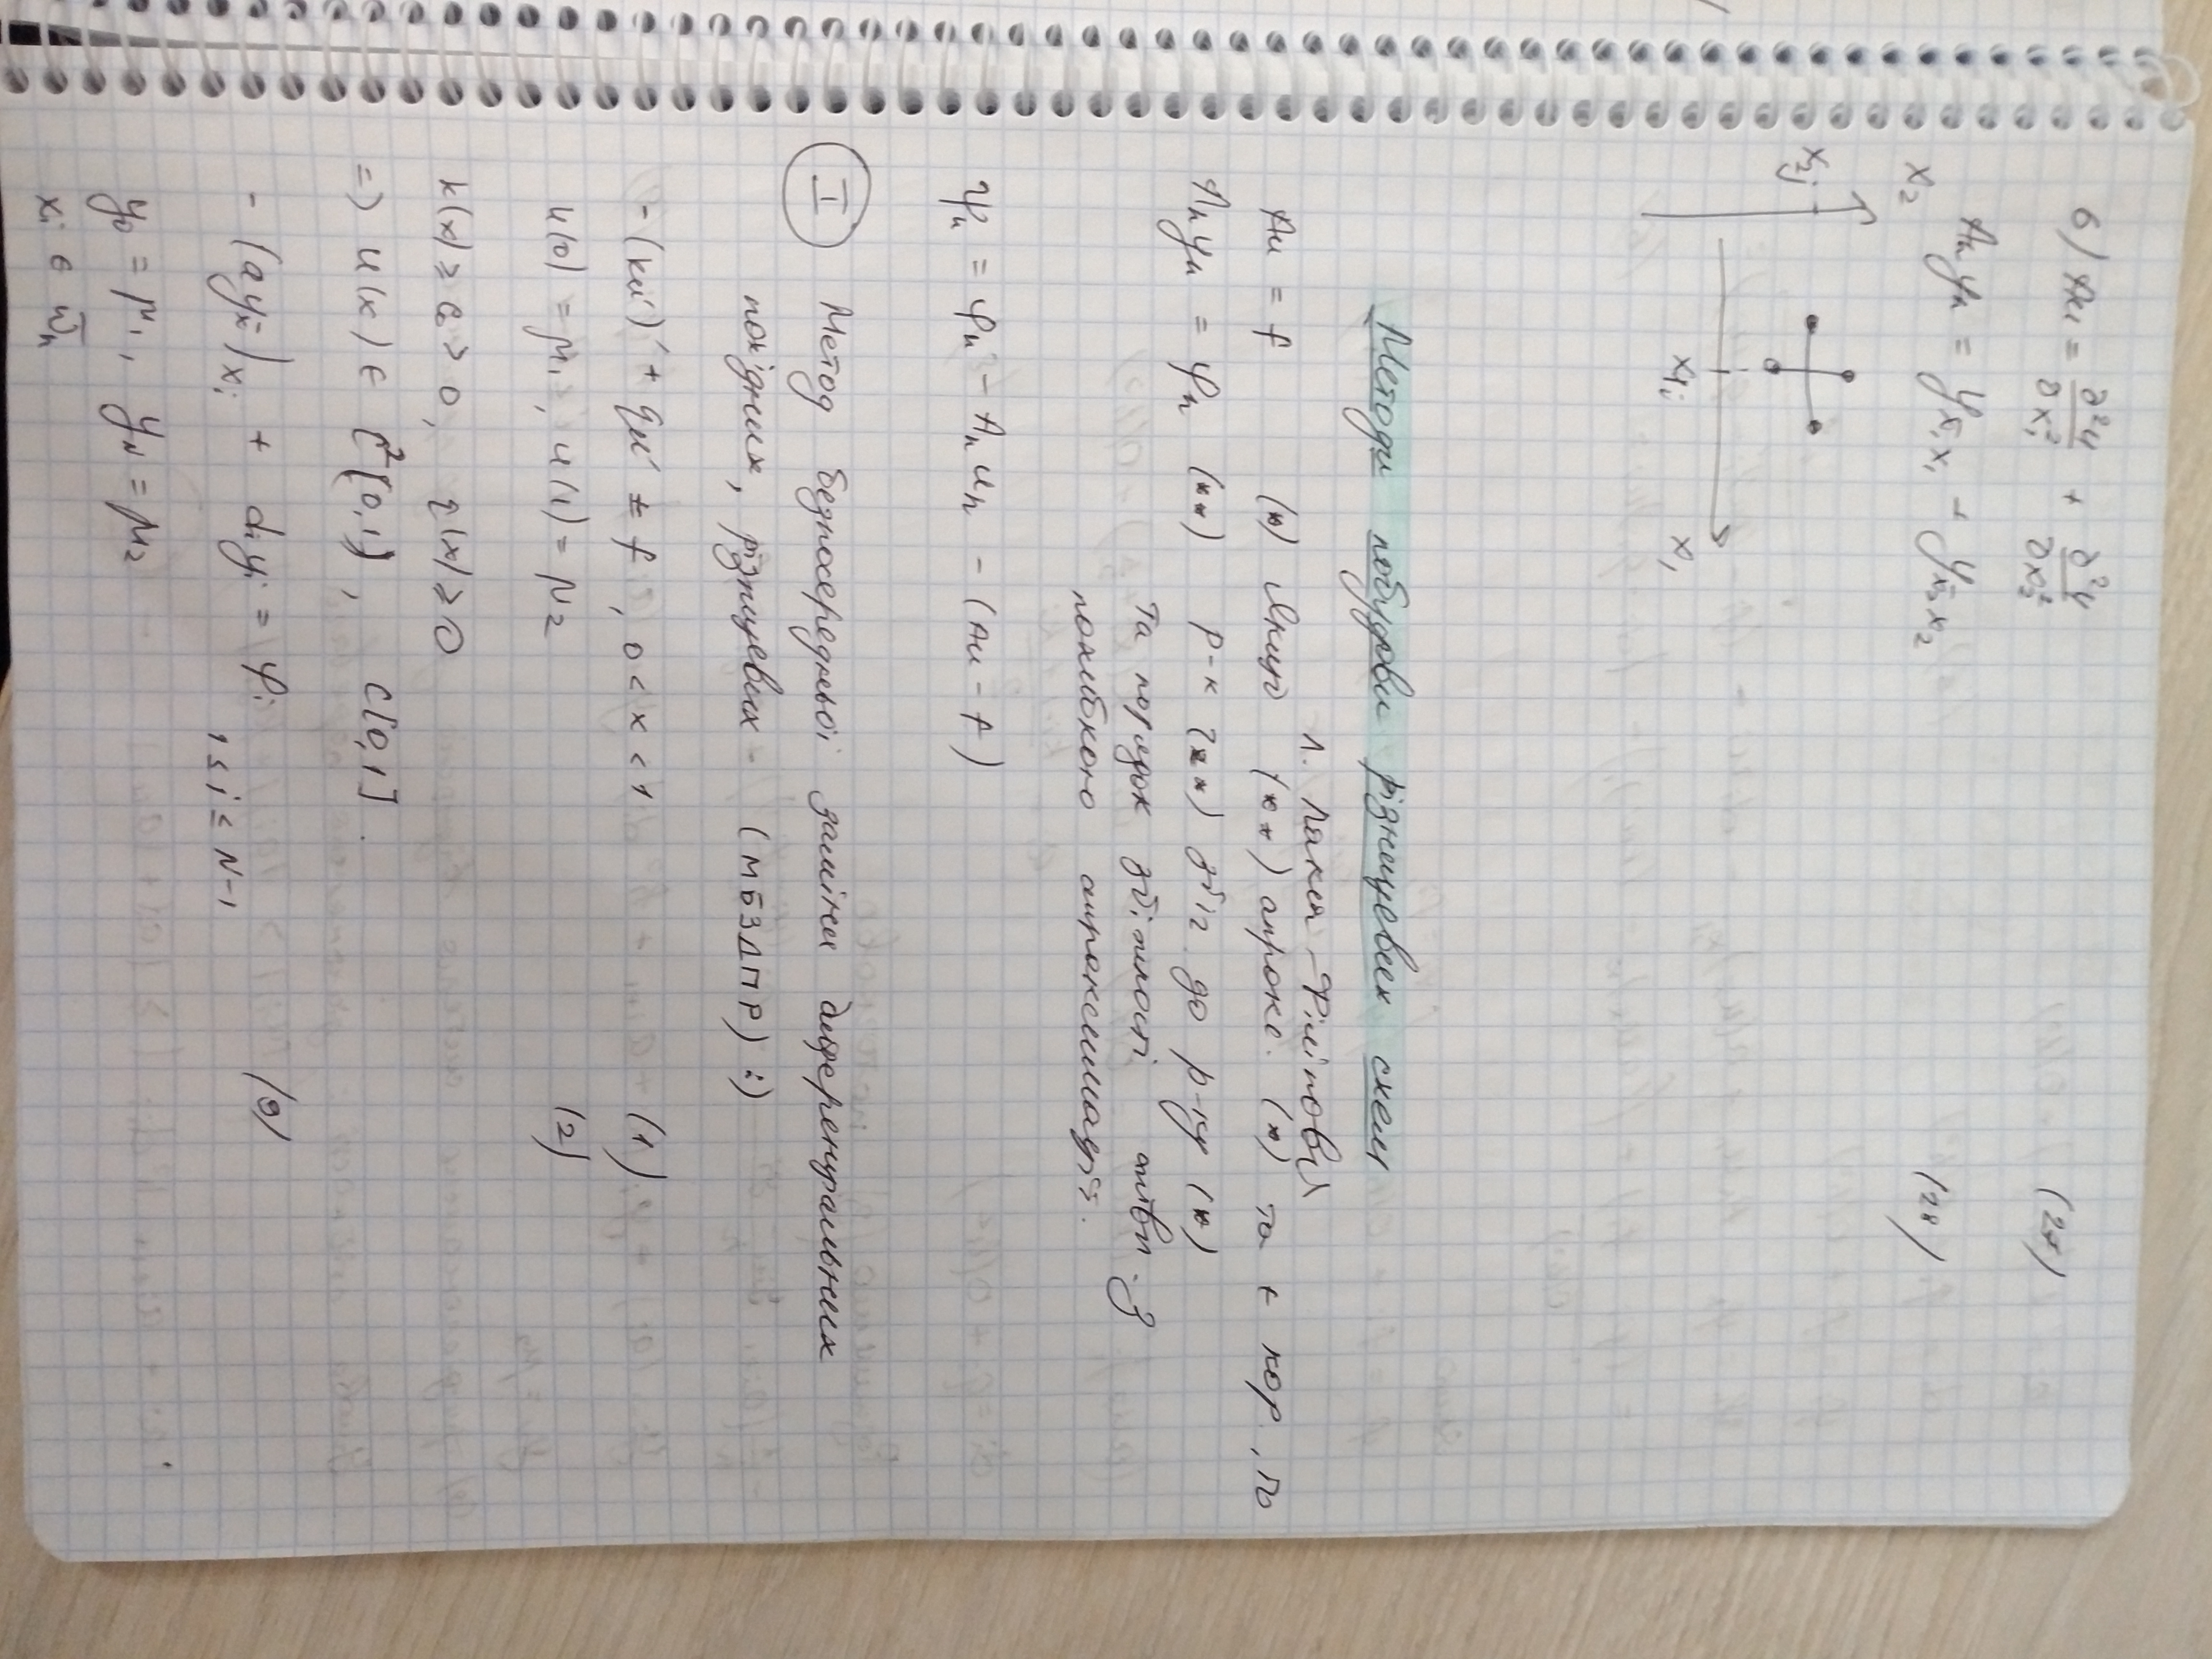 6) Au = ∂²u/∂x₁² + ∂²u/∂x₂² (27)
Aₕyₕ = y_x̄₁x₁ + y_x̄₂x₂ (28)
x₂
x₂ⱼ
x₁ᵢ x₁
Методи побудови різницевих схем
Л. Лакса-Філіпова
Au = f (*) Якщо (**) апрокс. (*) та + кор., то
Aₕyₕ = φₕ (**) р-к (**) збіг. до р-ку (*)
та порядок збіжності співп. з
похибкою апроксимації.
ψₕ = φₕ - Aₕuₕ - (Au - f)
I Метод безпосередньої заміни диференціальних
похідних, різницевих - (МБЗДПР) :)
- (ku')' + qu = f, 0 < x < 1 (1)
u(0) = μ₁, u(1) = μ₂ (2)
k(x) ≥ c₀ > 0, q(x) ≥ 0
=> u(x) ∈ C²(0,1), C[0,1].
- (ay_x̄)xᵢ + dᵢyᵢ = φᵢ (6)
1 ≤ i ≤ N-1
y₀ = μ₁, y_N = μ₂
xᵢ ∈ ω̄ₕ